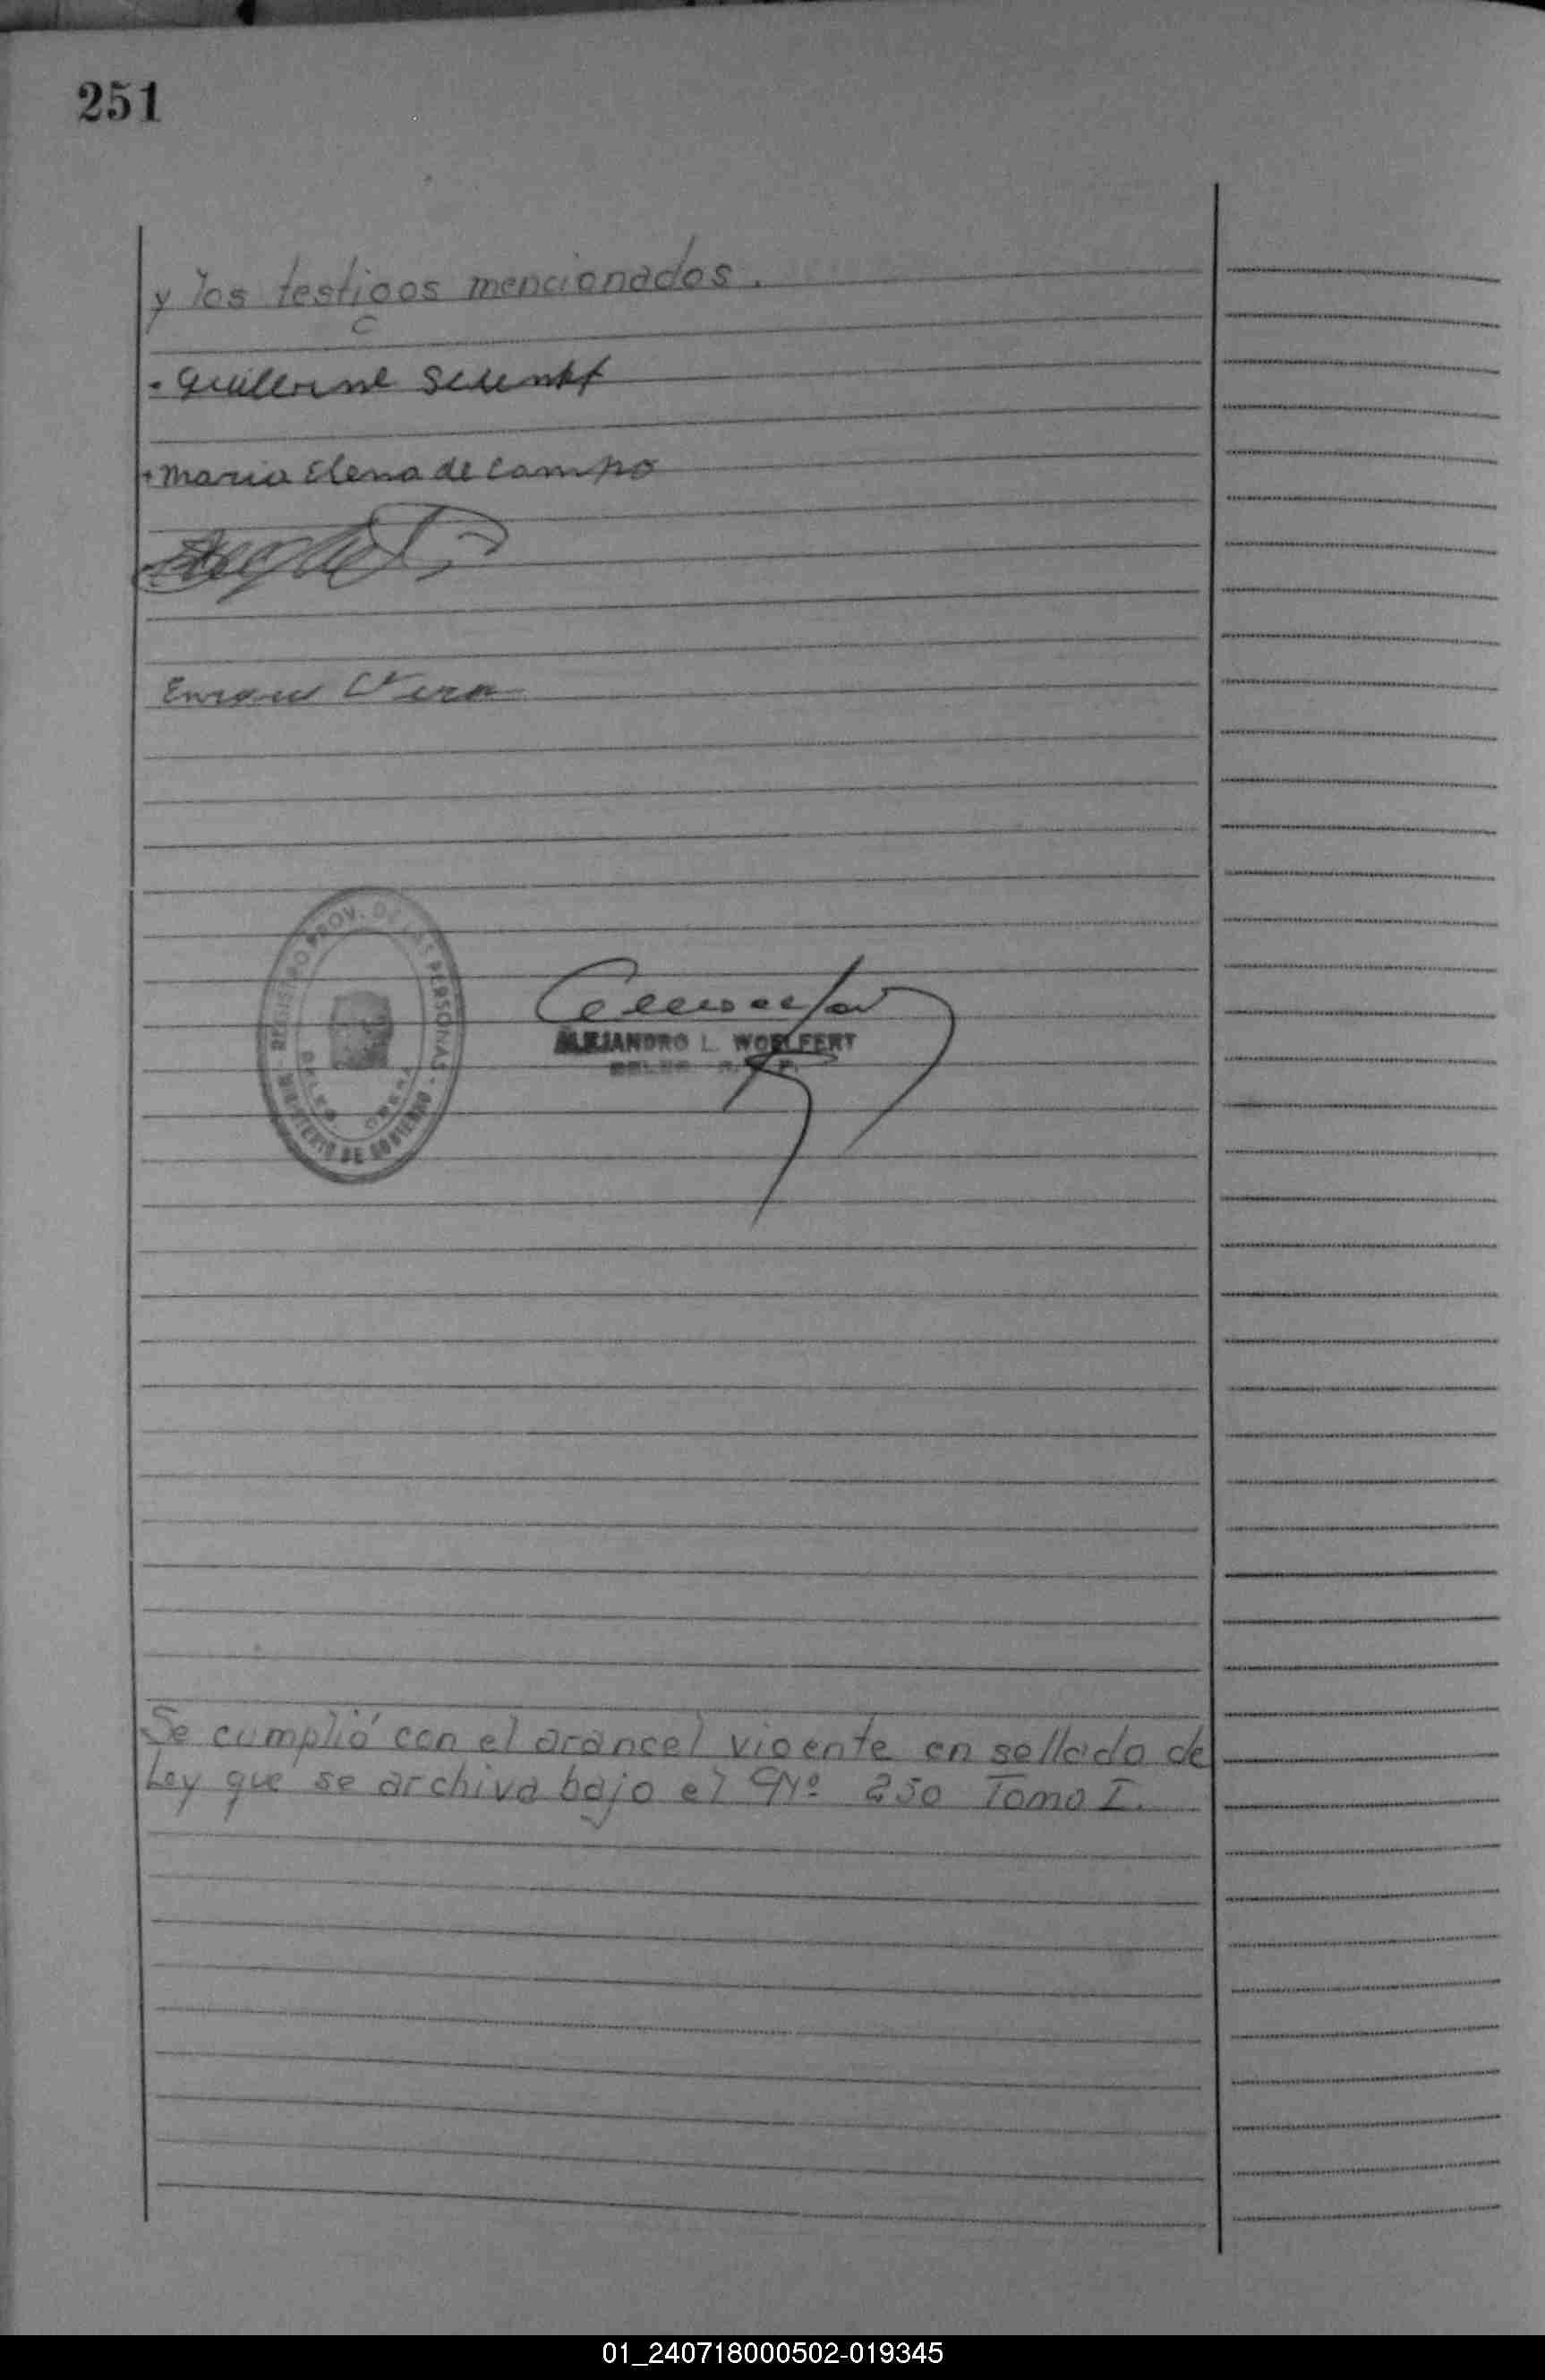 251
y los testigos mencionados.
Guillermo Schenkf
Maria Elena de Campo
Enrique Vera
REGISTRO PROV. DE LAS PERSONAS - MINISTERIO DE GOBIERNO -
DELEG OBERA
ALEJANDRO L. WOELFERT
DELEG R. P. P.
Se cumplió con el arancel vigente en sellado de
Ley que se archiva bajo el Nº 250 Tomo I.
01_240718000502-019345